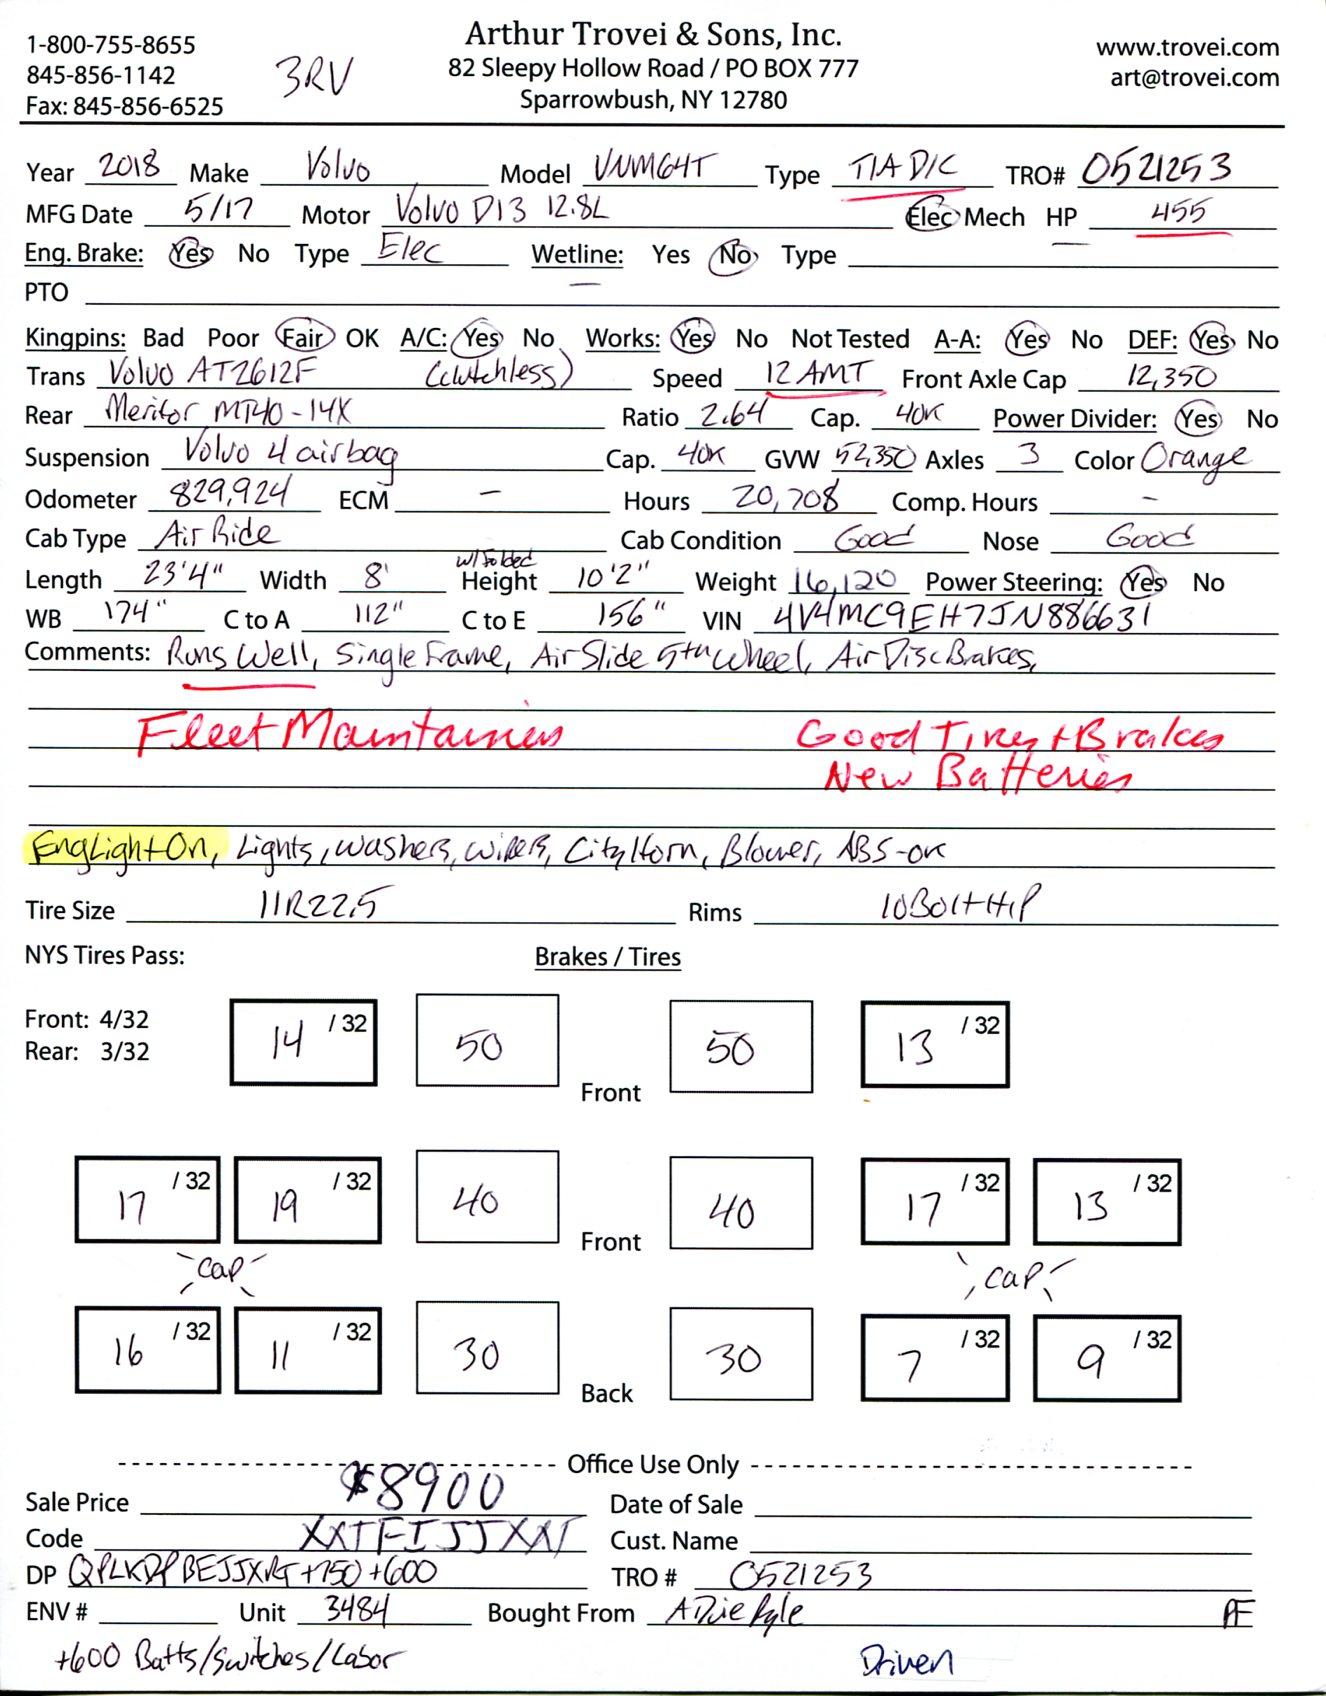 Arthur Trovei & Sons, Inc.
1-800-755-8655 82 Sleepy Hollow Road / PO BOX 777 www.trovei.com
845-856-1142 3RV Sparrowbush, NY 12780 art@trovei.com
Fax: 845-856-6525
Year 2018 Make Volvo Model VNM64T Type T/A D/C TRO# 0521253
MFG Date 5/17 Motor Volvo D13 12.8L Elec Mech HP 455
Eng. Brake: Yes No Type Elec Wetline: Yes No Type
PTO
Kingpins: Bad Poor Fair OK A/C: Yes No Works: Yes No Not Tested A-A: Yes No DEF: Yes No
Trans Volvo AT2612F (clutchless) Speed 12 AMT Front Axle Cap 12,350
Rear Meritor MT40-14X Ratio 2.64 Cap. 40K Power Divider: Yes No
Suspension Volvo 4 airbag Cap. 40K GVW 52,350 Axles 3 Color Orange
Odometer 829,924 ECM – Hours 20,708 Comp. Hours –
Cab Type Air Ride Cab Condition Good Nose Good
w/Folded
Length 23'4" Width 8' Height 10'2" Weight 16,120 Power Steering: Yes No
WB 174" C to A 112" C to E 156" VIN 4V4MC9EH7JN886631
Comments: Runs Well, Single Frame, Air Slide 5th Wheel, Air Disc Brakes,
Fleet Maintained Good Tires + Brakes
New Batteries
Eng Light On, Lights, washers, wipers, City Horn, Blower, ABS-ok
Tire Size 11R22.5 Rims 10 Bolt H.P
NYS Tires Pass: Brakes / Tires
Front: 4/32 14 /32 50 50 13 /32
Rear: 3/32
Front
17 /32 19 /32 40 40 17 /32 13 /32
Front
cap cap
16 /32 11 /32 30 30 7 /32 9 /32
Back
Office Use Only
Sale Price $8900 Date of Sale
Code XXTFIJJXXT Cust. Name
DP +750 +600 TRO # 0521253
ENV # Unit 3484 Bought From PF
+600 Batts/Switches/Labor Driven